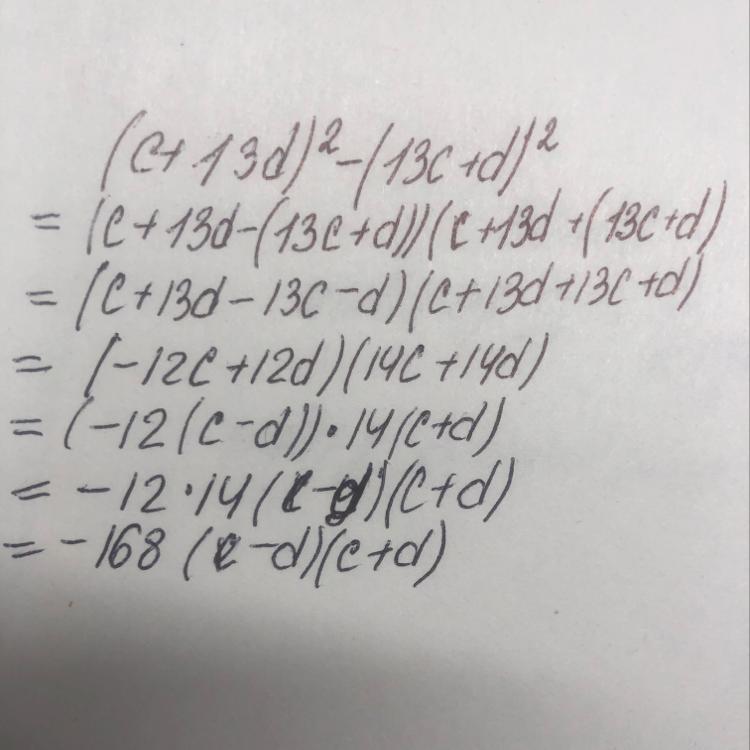 (c+13d)²-(13c+d)²
=(c+13d-(13c+d))(c+13d+(13c+d)
=(c+13d-13c-d)(c+13d+13c+d)
=(-12c+12d)(14c+14d)
=(-12(c-d))·14(c+d)
=-12·14(c-d)(c+d)
=-168(c-d)(c+d)